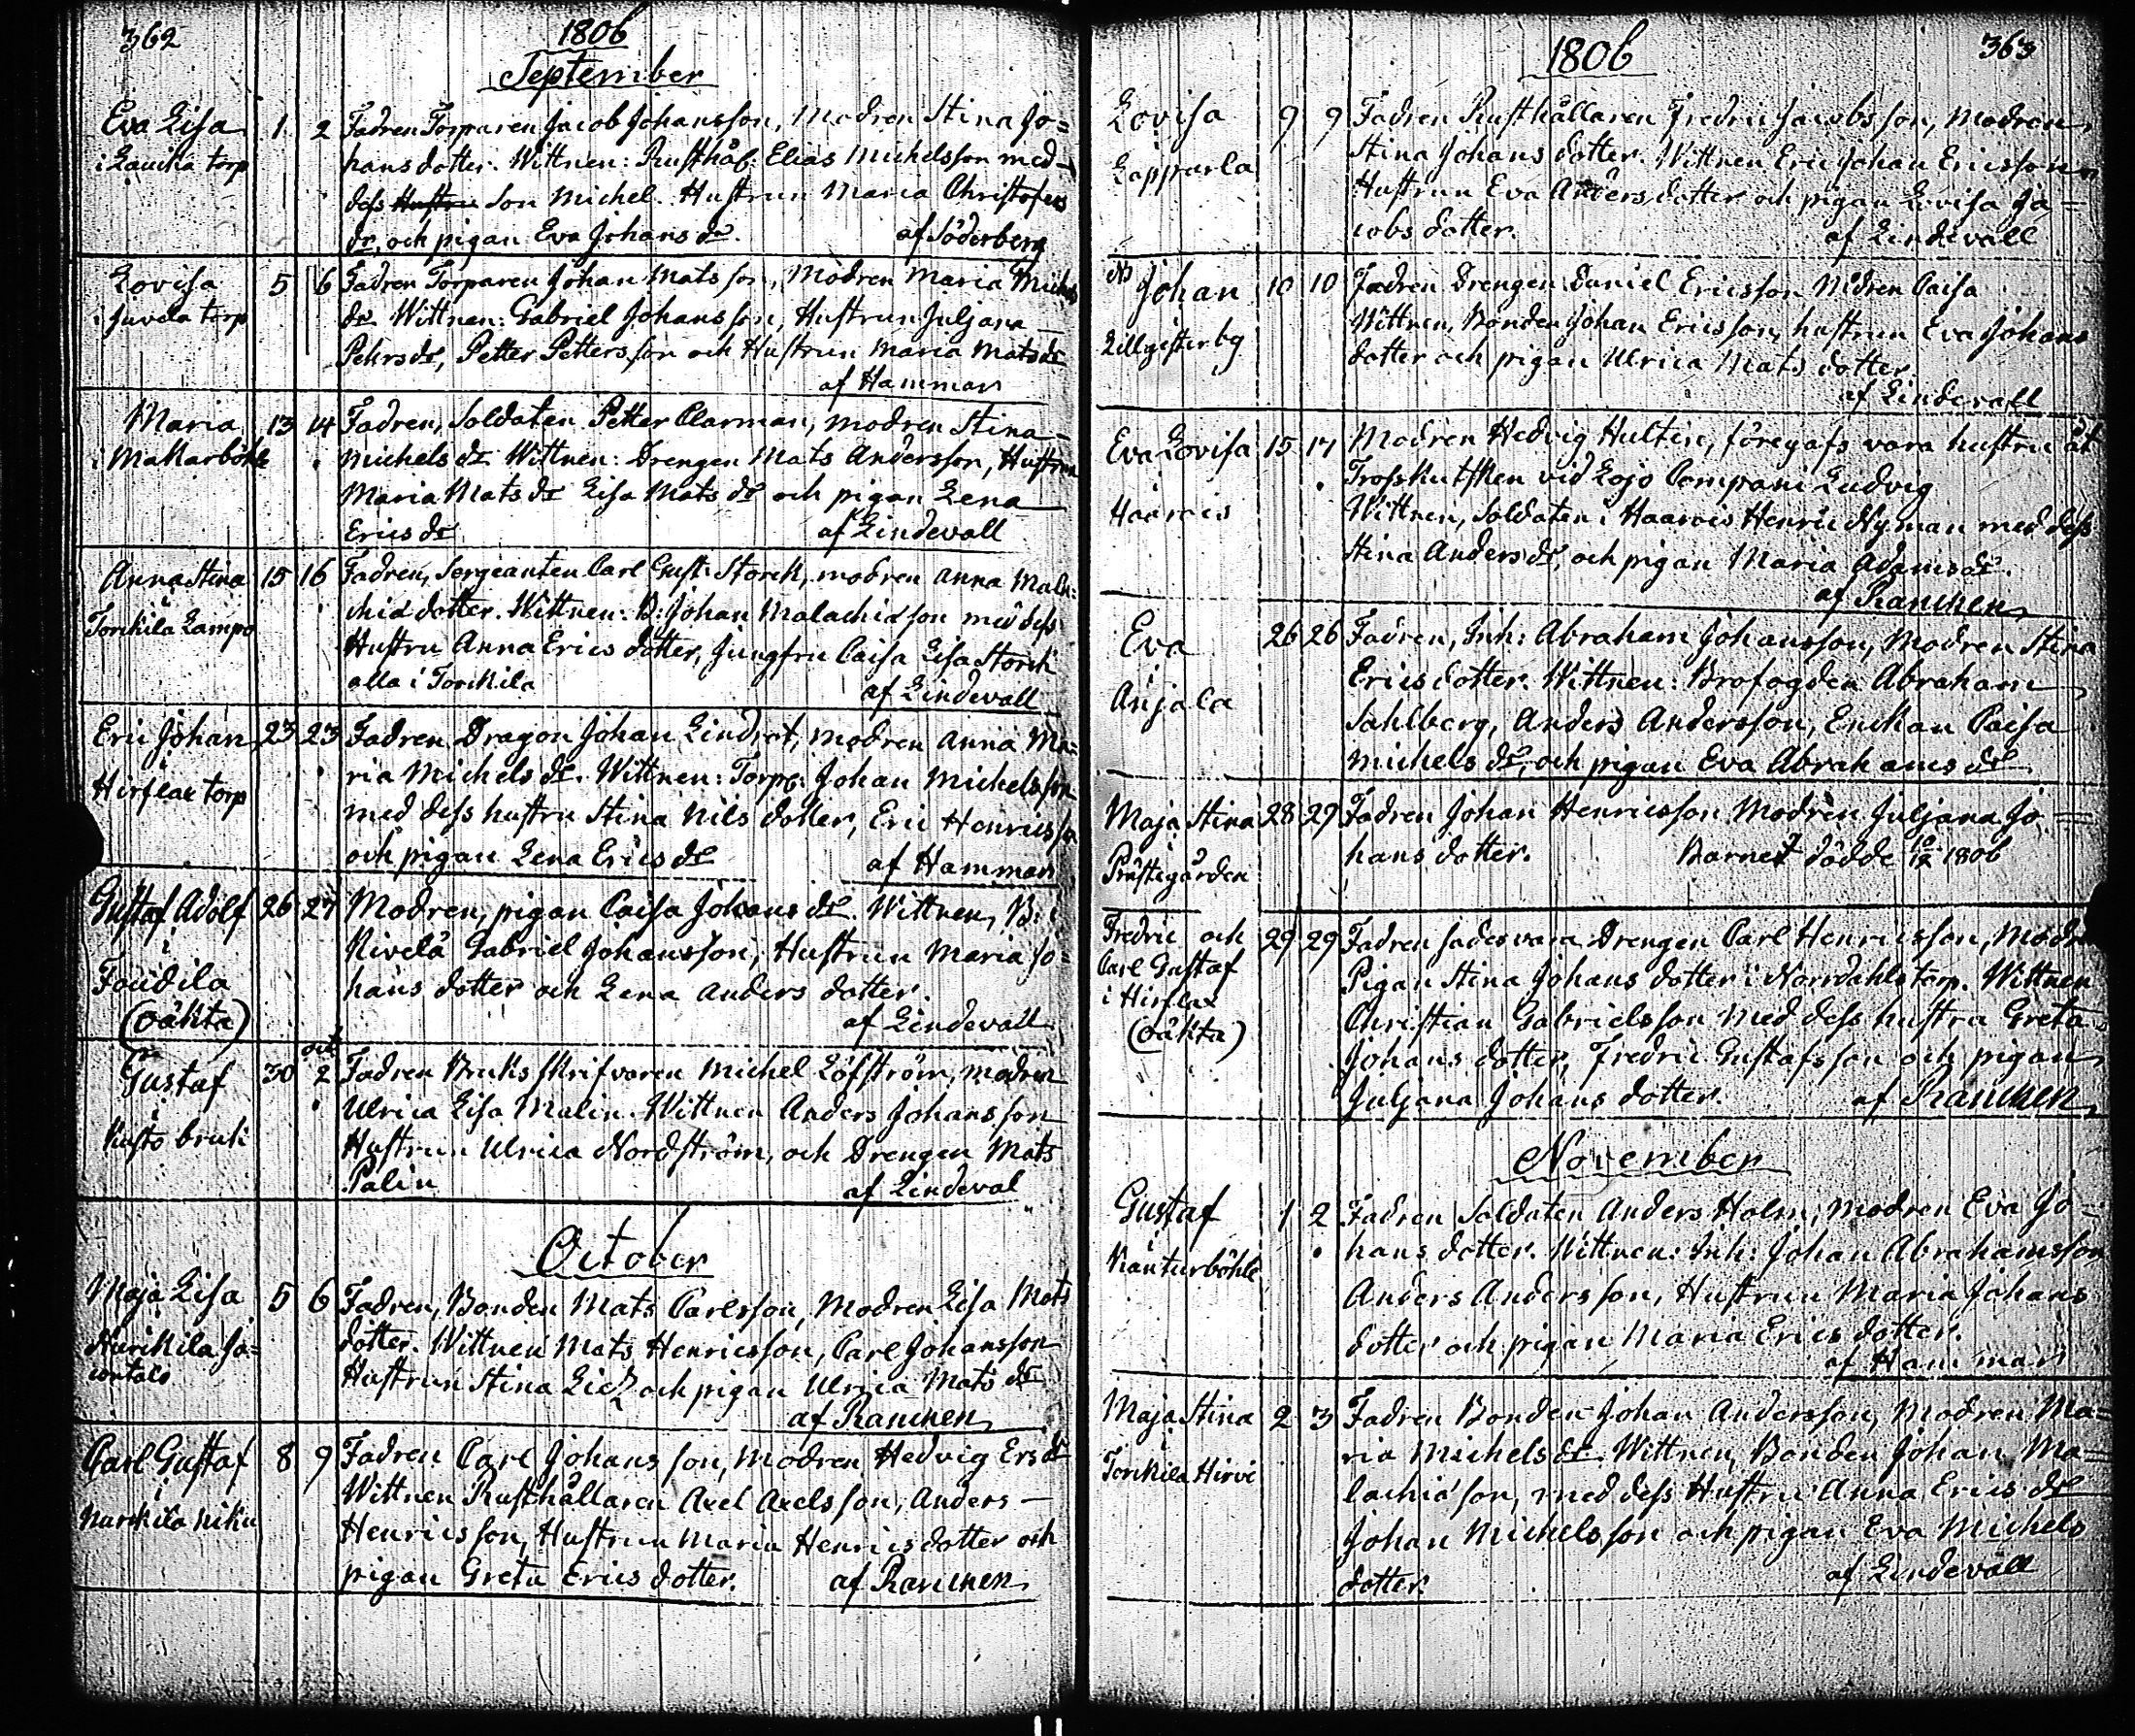 362
1806
September
Eva Lisa 1. 2 Fadren Torparen Jacob Johansson, Modren Stina Jo=
i Lauika torp hans dotter. Wittnen: Rusthål: Elias Michelsson med
dess Hustru Son Michel. Hustrun Maria Christofers
dr, och pigan Eva Johans dr. af Söderberg
Lovisa 5 6 Fadren Torparen Johan Matsson, Modren Maria Michels
i Juvela torp dr Wittnen: Gabriel Johansson, Hustrun Juljana
Pehrs dr, Petter Pettersson och Hustrun Maria Mats dr
af Hammar
Maria 13 14 Fadren, Soldaten Petter Clarman, modren Stina
i Mallarböhle Michels dr Wittnen: Drengen Mats Andersson, Hustrun
Maria Mats dr Lisa Mats dr och pigan Lena
Erics dr af Lindevall
Anna Stina 15 16 Fadren, Sergeanten Carl Gust: Storck, modren Anna Mala=
i
Torckila Lampo chiæ dotter. Wittnen: B: Johan Malachiæ son med dess
Hustru Anna Erics dotter, Jungfru Caisa Lisa Storck
alla i Torckila af Lindevall
Eric Johan 23 23 Fadren Dragon Johan Lindrot, modren Anna Ma=
i
Hirslax torp ria Michels dr. Wittnen: Torp: Johan Michelsson
med dess hustru Stina Nils dotter, Eric Henricsson
och pigan Lena Erics dr af Hammar
Gustaf Adolf 26 27 Modren, pigan Caisa Johans dr. Wittnen, B:
i
Nivelä Gabriel Johansson, Hustrun Maria Jo=
hans dotter och Lena Anders dotter.
(oäkta) af Lindevall
oct
Gustaf 30 2 Fadren Bruks skrifvaren Michel Löfström, modren
i
Kusto bruk Ulrica Lisa Malin. Wittnen Anders Johansson
Hustrun Ulrica Nordström, och Drengen Mats
Palin af Lindeval
October
Maja Lisa 5 6 Fadren, Bonden Mats Carlsson, Modren Lisa Mats
dotter. Wittnen Mats Henricsson, Carl Johansson
Hustrun Stina och pigan Ulrica Mats dr
af Rancken
Carl Gustaf 8 9 Fadren Carl Johansson, Modren Hedvig Ers dr
i
Wittnen Rusthållaren Axel Axelsson, Anders
Henricsson, Hustrun Maria Henrics dotter och
pigan Greta Erics dotter. af Rancken
1806
363
Lovisa 9 9 Fadren Rusthållaren Fredric Jacobsson, Modren
Stina Johans dotter. Wittnen Eric Johan Ericsson
Lapparla Hustrun Eva Anders dotter och pigan Lovisa Ja=
cobs dotter. af Lindevall
Johan 10 10 Fadren Drengen Daniel Ericsson Modren Caisa
Wittnen, Bonden Johan Ericsson, hustrun Eva Johans
Lillgisterby dotter och pigan Ulrica Mats dotter
af Lindevall
Eva Lovisa 15 17 Modren Hedvig Hultin, föregafs vara hustru åt
Trosskutsken vid Lojo Compani Ludvig
Haarois Wittnen, Soldaten i Haarois Henric Nyman med dess
Stina Anders dr, och pigan Maria Adams dr.
af Rancken
Eva 26 26 Fadren, Inh: Abraham Johansson, Modren Stina
Erics dotter. Wittnen: Brofogden Abraham
Anjala Sahlberg, Anders Andersson, Enckan Caisa
Michels dr, och pigan Eva Abrahams dr
Maja Stina 28 29 Fadren Johan Henricsson Modren Juljana Jo=
Prästegården hans dotter. Barnet dödde 10/12 1806
Fredric och 29 29 Fadren sades vara Drengen Carl Henricsson, Modren
Carl Gustaf Pigan Stina Johans dotter i Norrdahls torp. Wittnen
i Hirslax Christian Gabrielsson med dess hustru Greta
(oäkta) Johans dotter, Fredric Gustafsson och pigan
Juljana Johans dotter. af Rancken
November
Gustaf 1 2 Fadren Soldaten Anders Holm, modren Eva Jo=
i
Kanturböhle hans dotter. Wittnen: Inh: Johan Abrahamsson
Anders Andersson, Hustrun Maria Johans
dotter och pigan Maria Erics dotter.
af Hammar
Maja Stina 2 3 Fadren Bonden Johan Andersson, Modren Ma=
i
Torckila Hirvi ria Michels dr. Wittnen, Bonden Johan Ma=
lachiæ son, med dess Hustru Anna Erics dr
Johan Michelsson och pigan Eva Michels
dotter. af Lindevall